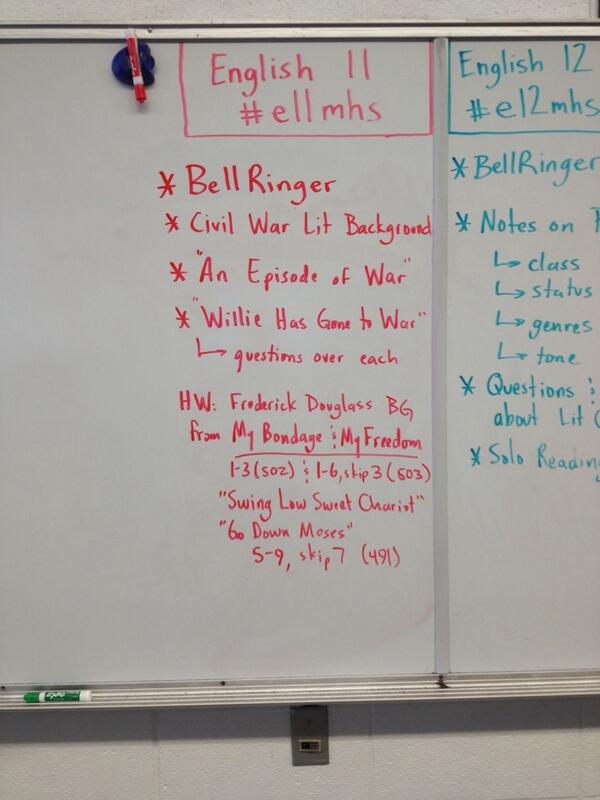 English 11
#e11mhs
* BellRinger
* Civil War Lit Background
* "An Episode of War"
* "Willie Has Gone to War"
↳ questions over each
HW: Frederick Douglass BG
from My Bondage & My Freedom
1-3 (502) & 1-6, skip 3 (503)
"Swing Low Sweet Chariot"
"Go Down Moses"
5-9, skip 7 (491)
English 12
#e12mhs
* BellRinger
* Notes on
↳ class
↳ status
↳ genres
↳ tone
* Questions &
about Lit
* Solo Reading
expo